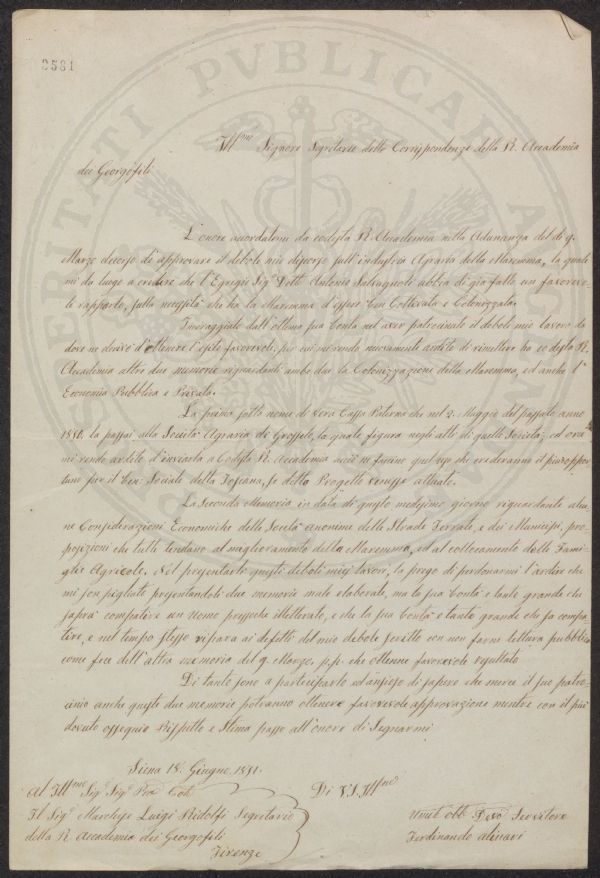 2581
PROSPERITATI PUBLICAE AUGENDAE
Ill.mo Signore Segretario delle Corrispondenze della R. Accademia
dei Georgofili
L'onore accordatomi da codesta R. Accademia nella Adunanza del dì 9.
Marzo decorso di approvare il debole mio discorso sull'industria Agraria della Maremma, la quale
mi da luogo a credere che l'Egregio Sig.e Dott. Antonio Salvagnoli abbia di già fatto un favorevo-
le rapporto, sulla necessità che ha la Maremma d'esser ben Coltivata e Colonizzata.
Incoraggiato dall'ottima sua bontà nel aver patrocinato il debol mio lavoro da
dove ne derivò d'ottenere l'esito favorevole, per cui mi rendo nuovamente ardito di rimettere ha codesta R.
Accademia altre due memorie riguardanti ambe due la Colonizzazione della Maremma, ed anche l'
Economia Pubblica e Privata.
La prima sotto nome di vera Cassa Paterna che nel 2. Maggio del passato anno
la passai alla Società Agraria di Grosseto, la quale figura negli atti di quella Società; ed ora
mi rendo ardito d'inviarla a Codesta R. Accademia acciò ne faccino quel uso che crederanno il più oppor-
tuno per il ben Sociale della Toscana, se detto Progetto venisse attuato.
La Seconda Memoria in data di questo medesimo giorno riguardante alcu-
ne Considerazioni Economiche delle Società anonime delle Strade Ferrate, e dei Municipi, pro-
posizioni che tutte tendano al miglioramento della Maremma, ed al collocamento delle Fami-
glie Agricole. Nel presentarle questi deboli miei lavori, la prego di perdonarmi l'ardire che
mi son pigliato presentandoli due memorie male elaborate, ma la sua bontà è tanto grande che
saprà compatire un uomo pressochè illetterato, e che la sua bontà è tanto grande che sa compa-
tire, e nel tempo stesso ripara ai difetti del mio debole scritto con non farne lettura pubblica
come fece dell'altra memoria del 9. Marzo. p.p. che ottenne favorevole resultato
Di tanto sono a parteciparlo ed ansioso di sapere che mercè il suo patro-
cinio anche queste due memorie potranno ottenere favorevole approvazione mentre con il più
dovuto ossequio Rispetto e Stima passo all'onore di Segnarmi
Siena 18. Giugno
Al Ill.mo Sig.e Sig.e
Di V.S. Ill.ma
Il Sig.e Marchese Luigi Ridolfi Segretario
della R. Accademia dei Georgofili
Firenze
Umil. Obb. Dev.o Servitore
Ferdinando Alinari